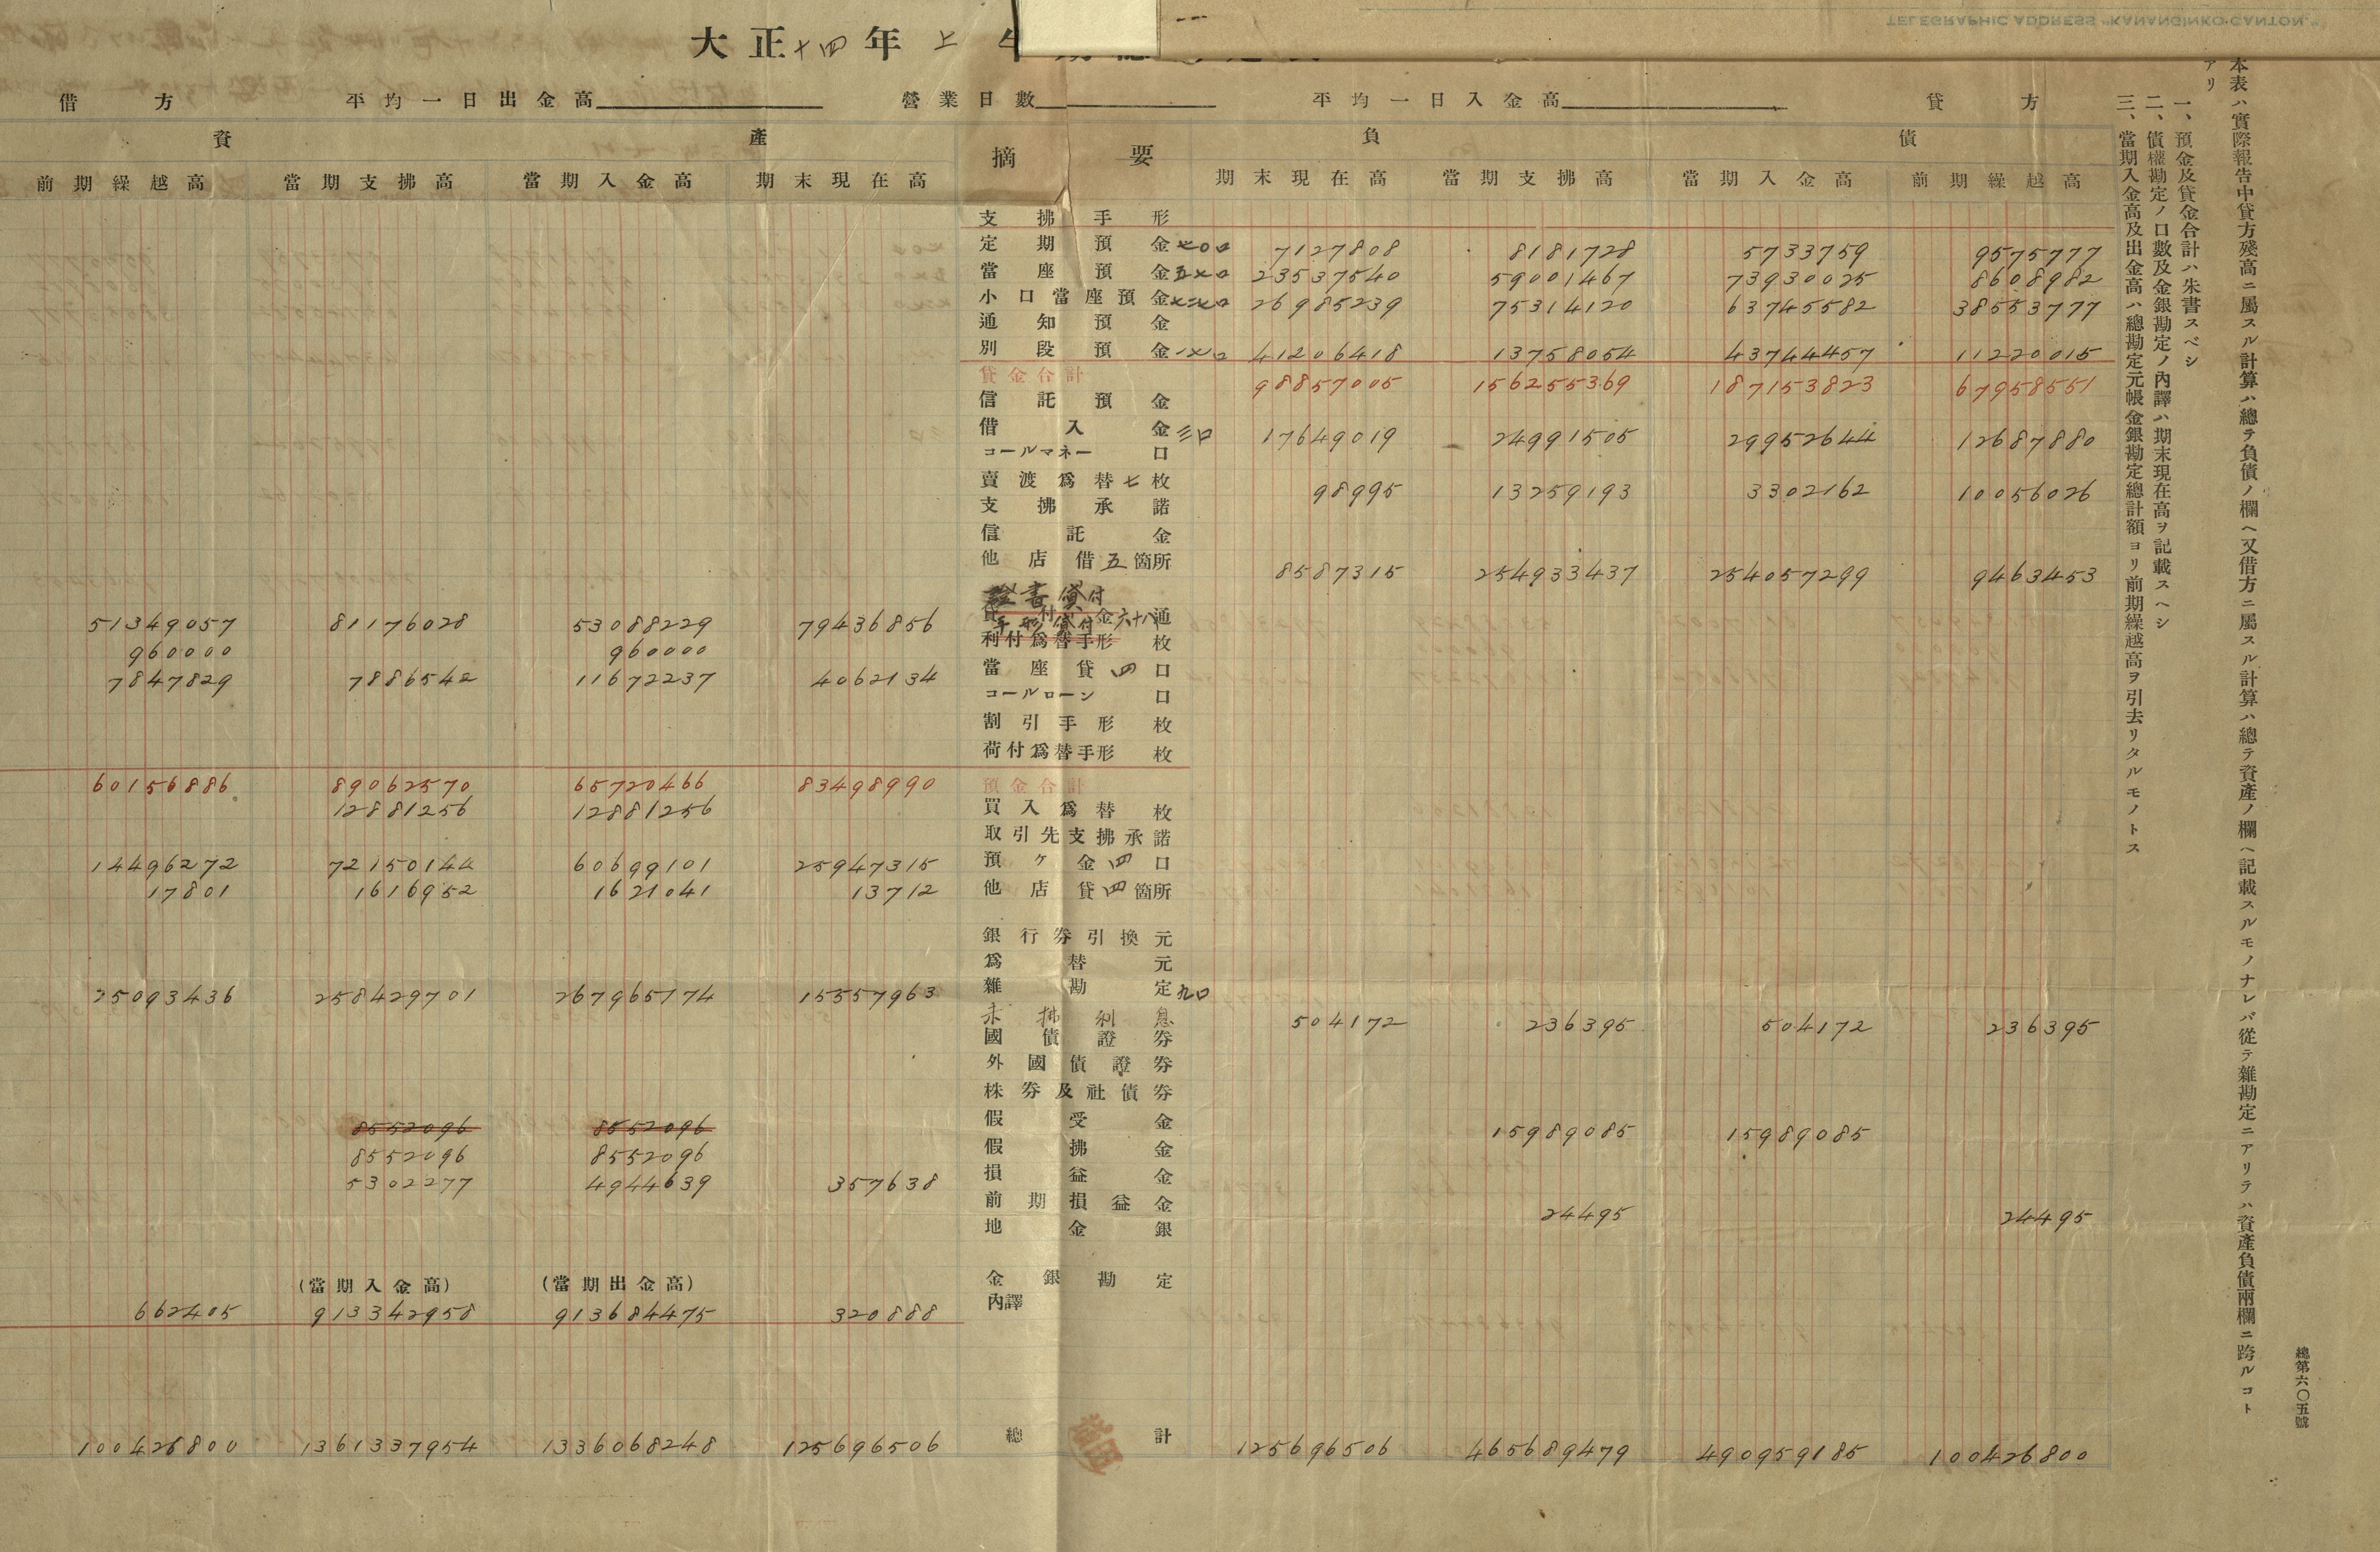 TELEGRAPHIC ADDRESS "KANANGINKO-CANTON."
大正十四年上
借方 平均一日出金高 營業日數 平均一日入金高 貸方
資產 摘要 負債
前期繰越高 當期支拂高 當期入金高 期末現在高 期末現在高 當期支拂高 當期入金高 前期繰越高
支拂手形
定期預金 七〇口 7127808 8181728 5733759 9575777
當座預金 五七口 23537540 59001467 73930025 8608982
小口當座預金 26985239 75314120 63745582 38553777
通知預金
別段預金 一七口 41206418 13758054 43744457 11220015
貸金合計 98857005 156255369 187153823 67958551
信託預金
借入金 三口 17649019 24991505 29952644 12687880
コールマネー 口
賣渡爲替七枚 98995 13259193 3302162 10056026
支拂承諾
信託金
他店借五箇所 8587315 254933437 254057299 9463453
證書貸付
51349057 81176028 53088229 79436856 貸付金六十八通
手形貸付
960000 960000 利付爲替手形 枚
7847829 7886542 11672237 4062134 當座貸四口
コールローン 口
割引手形 枚
荷付爲替手形 枚
60156886 89062570 65720466 83498990 預金合計
12881256 12881256 買入爲替 枚
取引先支拂承諾
14496272 72150144 60699101 25947315 預ケ金四口
17801 1616952 1621041 13712 他店貸四箇所
銀行券引換元
爲替元
25093436 258429701 267965174 15557963 雜勘定 九口
未拂利息 504172 236395 504172 236395
國債證券
外國債證券
株券及社債券
8552096 8552096 假受金 15989085 15989085
8552096 8552096 假拂金
5302277 4944639 357638 損益金
前期損益金 24495 24495
地金銀
(當期入金高) (當期出金高) 金銀勘定
662405 913342958 913684475 320888 內譯
100426800 1361337954 1336068248 125696506 總計 125696506 465689479 490959185 100426800
本表ハ實際報告中貸方殘高ニ屬スル計算ハ總テ負債ノ欄ヘ又借方ニ屬スル計算ハ總テ資產ノ欄ヘ記載スルモノナレバ從テ雜勘定ニアリテハ資產負債兩欄ニ跨ルコト
アリ
一、預金及貸金合計ハ朱書スベシ
二、債權勘定ノ口數及金銀勘定ノ內譯ハ期末現在高ヲ記載スヘシ
三、當期入金高及出金高ハ總勘定元帳金銀勘定總計額ヨリ前期繰越高ヲ引去リタルモノトス
總第六〇五號